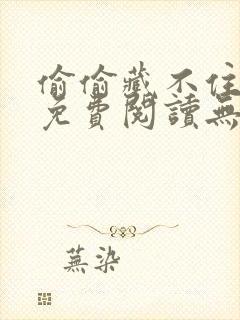 偷偷藏不住
免費閱讀無
蕪染